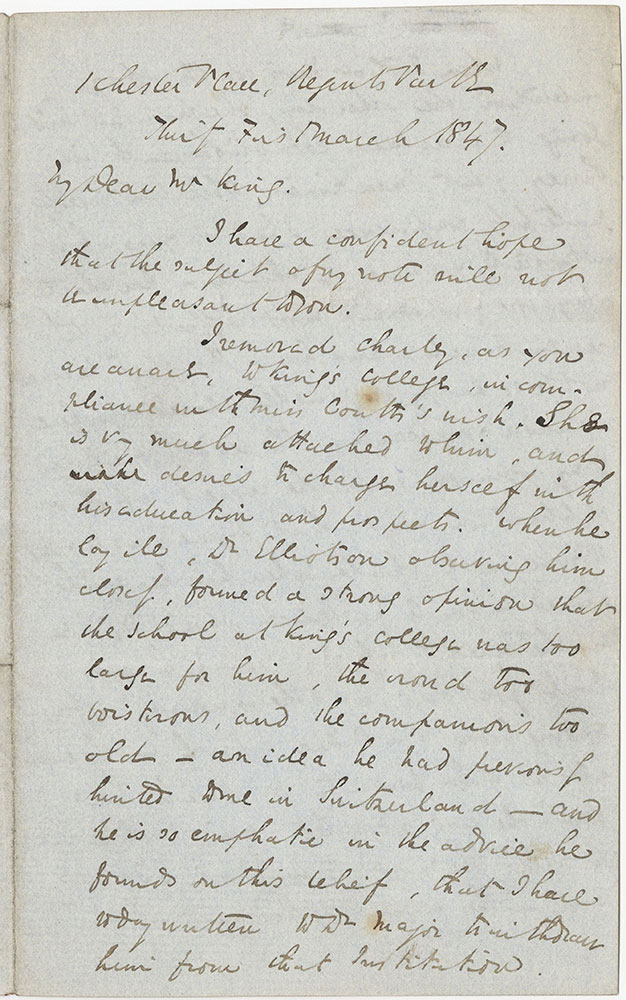 1 Chester Place, Regents Park
March 1847.
My Dear Mr King.
I have a confident hope
that the subject of my note will not
be unpleasant to you.
I removed Charley, as you
are aware, to King's College, in com-
pliance with Miss Coutts's wish. She
is very much attached to him, and
desires to charge herself with
his education and prospects. When he
lay ill, Dr Elliotson observing him
closely, formed a strong opinion that
the school at King's College was too
large for him, the crowd too
boisterous, and the companions too
old — an idea he had previously
hinted to me in Switzerland — and
he is so emphatic in the advice he
founds on this belief, that I have
today written to Dr Major to withdraw
him from that Institution.